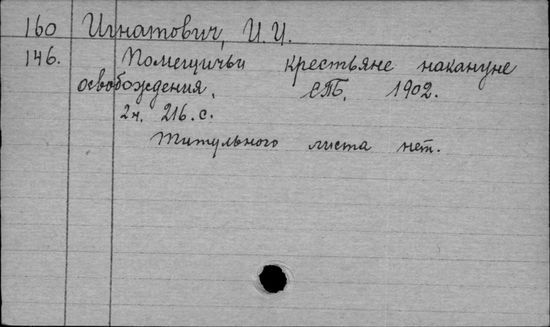 160 Игнатович, И.И.
146. Помещичьи крестьяне накануне
освобождения. СПБ. 1902.
2н. 216.с.
Титульного листа нет.